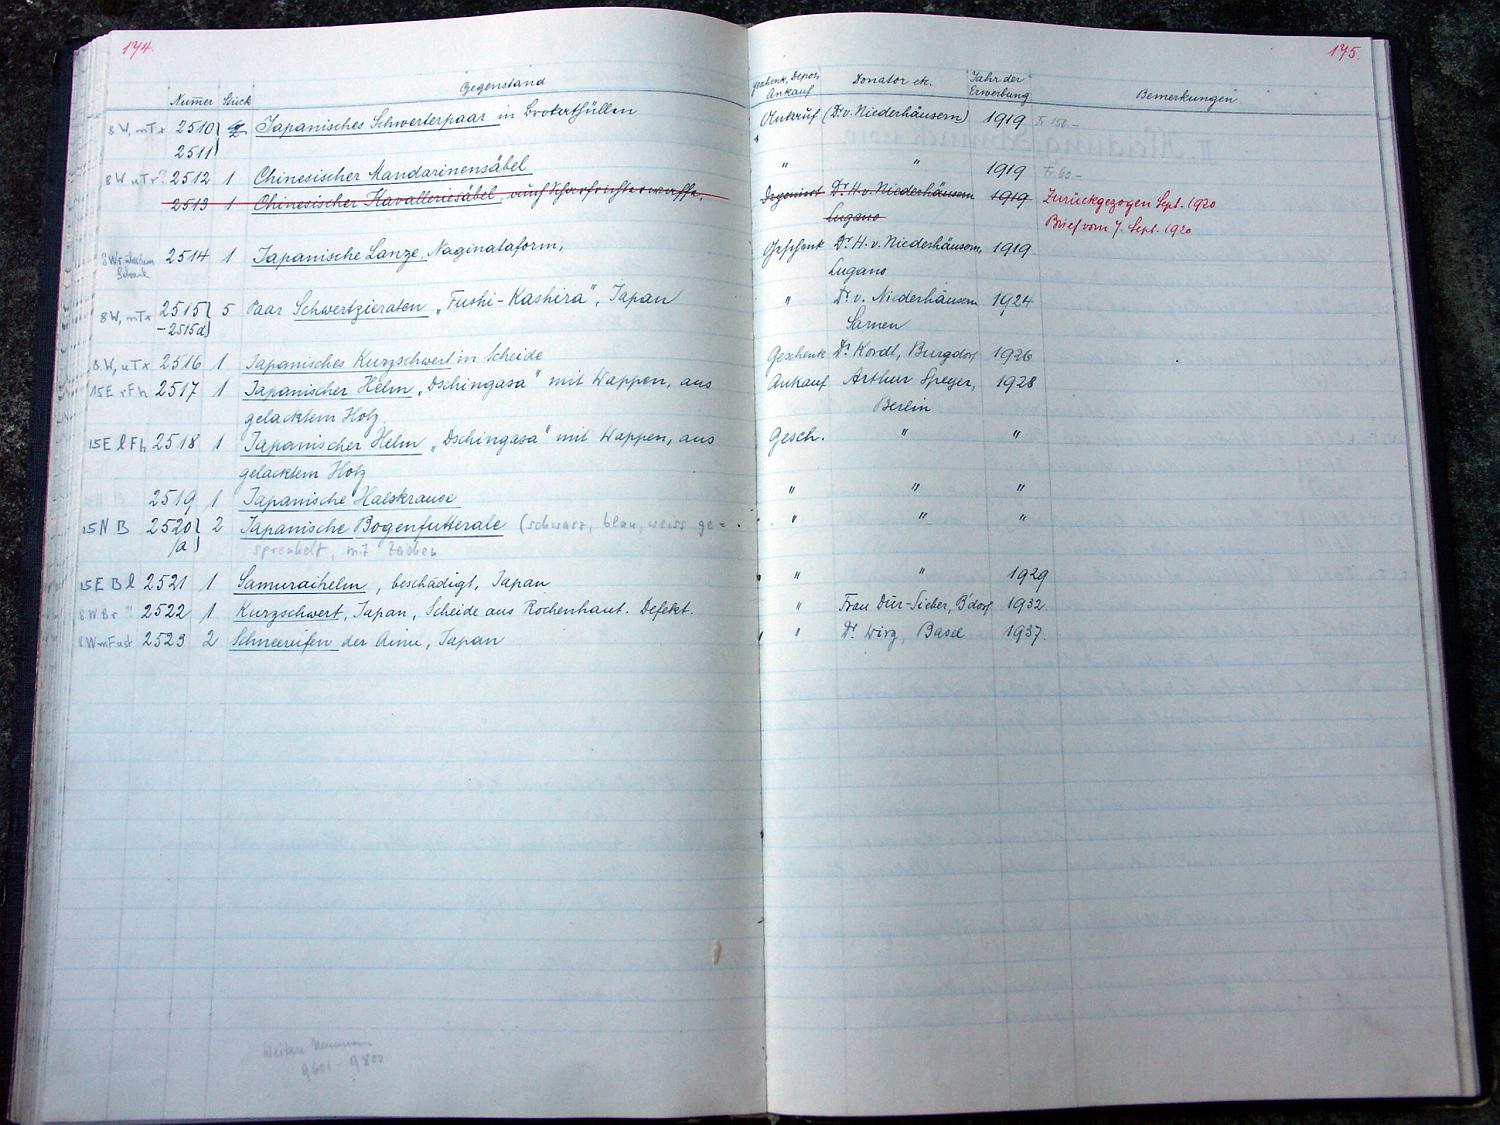 174.
175.
Numer Stück Gegenstand Geschenk, Depos, Ankauf Donator etc. Jahr der Erwerbung Bemerkungen
8 W, mTx 2510 2 Japanisches Schwerterpaar in Brokathüllen Ankauf (Dr. v. Niederhäusern) 1919 Fr. 150.–
2511
8 W uTr? 2512 1 Chinesischer Mandarinensäbel " " 1919 Fr. 60.–
2513 1 Chinesischer Kavalleriesäbel, auch Scharfrichterwaffe. Deponiert Dr. H. v. Niederhäusern 1919 Zurückgezogen Sept. 1920
Lugano Brief vom 7. Sept. 1920
2514 1 Japanische Lanze, Naginataform, Geschenk Dr. H. v. Niederhäusern, 1919
Lugano
8 W, mTx 2515 5 Paar Schwertzieraten „Fushi-Kashira", Japan " Dr. v. Niederhäusern 1924
–2515d Sarnen
8 W, uTx 2516 1 Japanisches Kurzschwert in Scheide Geschenk Dr. Kordt, Burgdorf 1926
15 E rFh 2517 1 Japanischer Helm „Dschingasa" mit Wappen, aus Ankauf Arthur Speyer, 1928
gelacktem Holz Berlin
15 E l Fh 2518 1 Japanischer Helm „Dschingasa" mit Wappen, aus Gesch. " "
gelacktem Holz
2519 1 Japanische Halskrause " " "
15 N B 2520 2 Japanische Bogenfutterale (schwarz, blau, weiss ge= " " "
/a sprenkelt, mit Zeichen
15 E B l 2521 1 Samuraihelm, beschädigt, Japan " " 1929
8 W B r 2522 1 Kurzschwert, Japan, Scheide aus Rochenhaut. Defekt. " Frau Dür-Sieber, B'dorf 1932.
2523 2 Schneereifen der Ainu, Japan " Dr. Wirz, Basel 1937.
Weitere Nummern
9601 - 9800